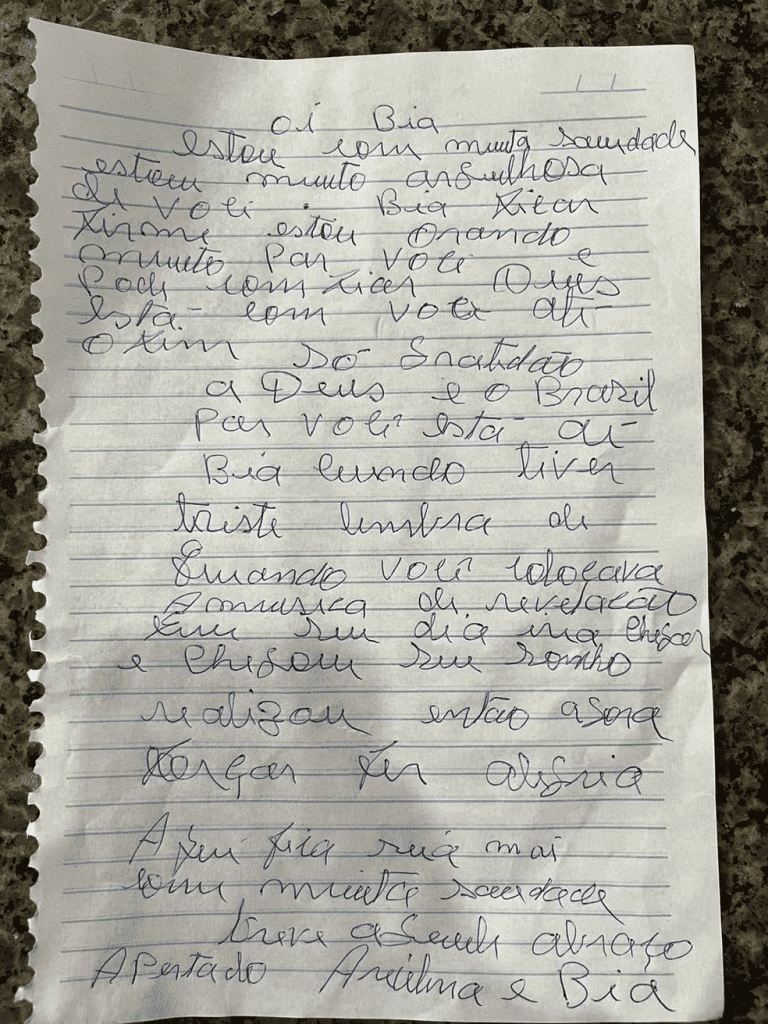 oi Bia
estou com muita saudade
estou muito orgulhosa
di voli . Bia ficar
firme estou orando
muito Por voli e
Podi comfiar Deus
está com voli ati
o fim só gratidão
a Deus e o Brazil
Por voli está ai
Bia cuando tiver
triste lembra di
quando voli colocava
A musica di revelacão
qui seu dia iria chegar
e chegou seu sonho
realizou então agora
força fer alegria
Aqui fica sua mai
com muinta saudade
breve abraço
Apertado e Bia